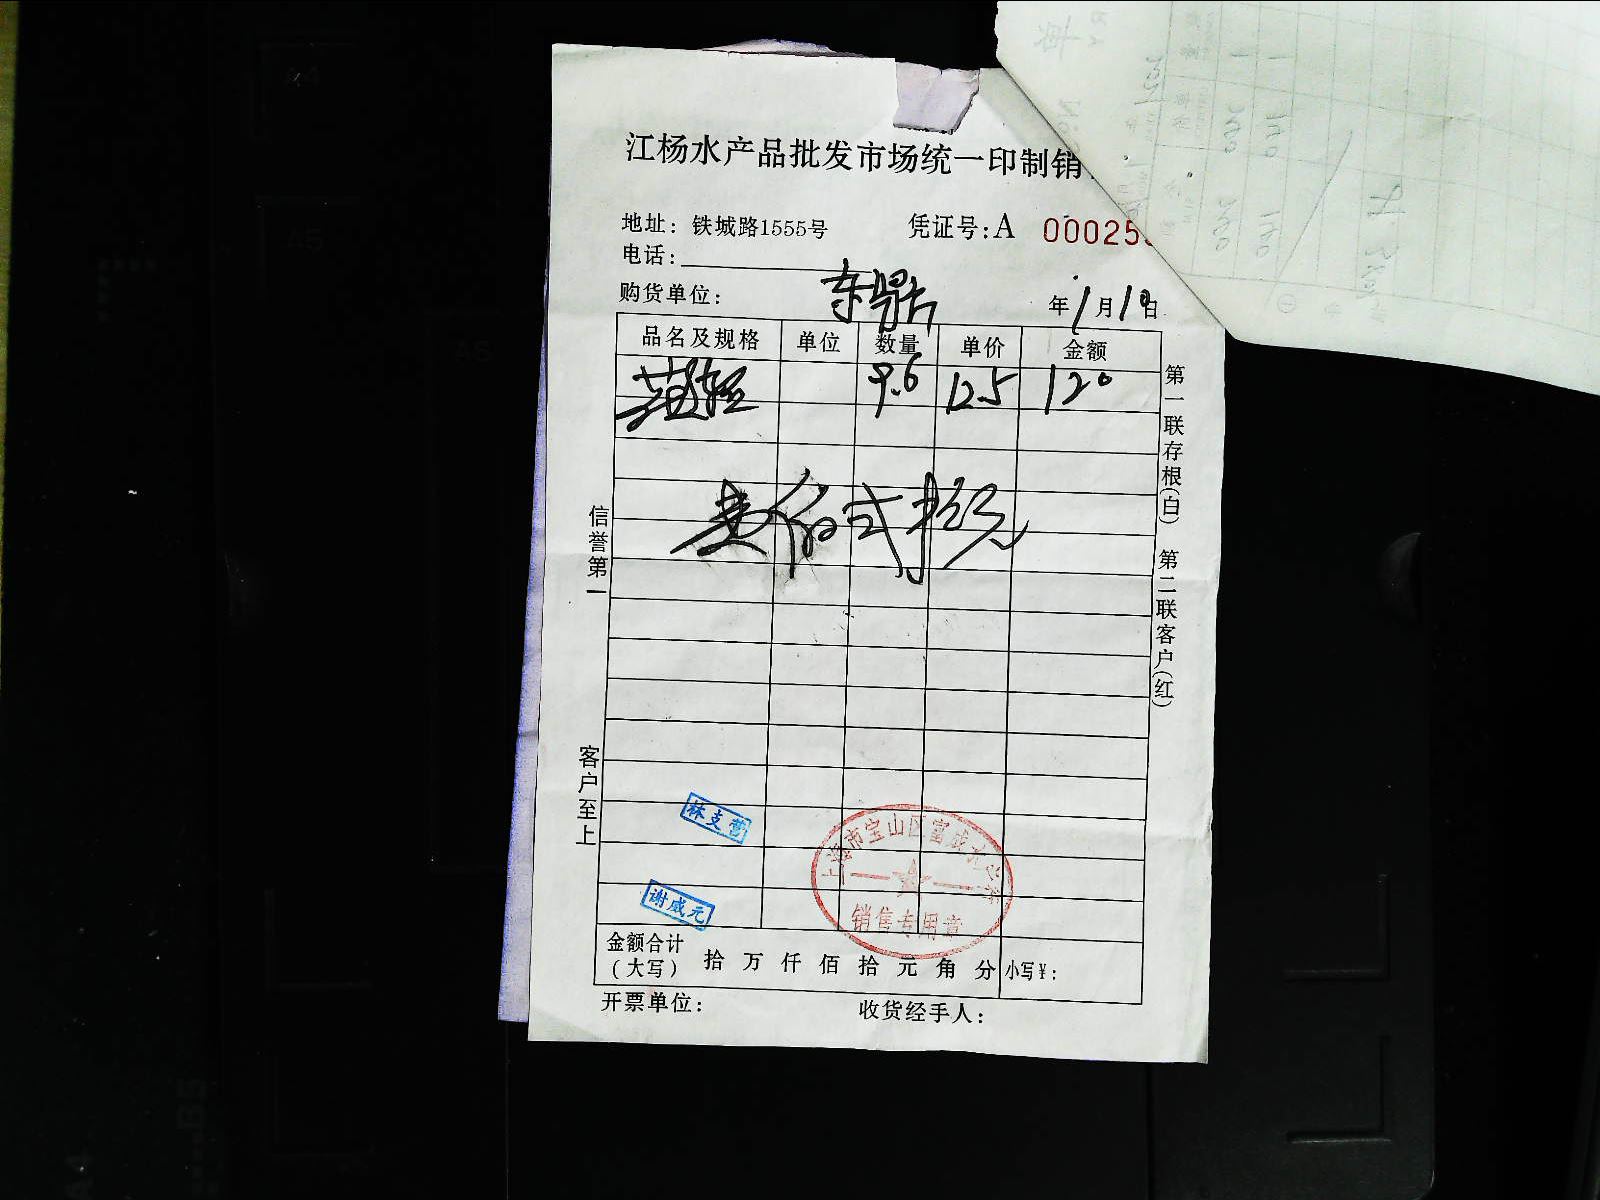 江杨水产品批发市场统一印制销
地址：铁城路1555号 凭证号：A 00025
电话：
购货单位： 东 年1月10日
品名及规格 单位 数量 单价 金额
9.6 12.5 120
壹佰弍拾元
第一联存根(白) 第二联客户(红)
信誉第一
客户至上
林支营
上海市宝山区富成水
销售专用章
谢咸元
金额合计
（大写） 拾 万 仟 佰 拾 元 角 分 小写¥：
开票单位： 收货经手人：